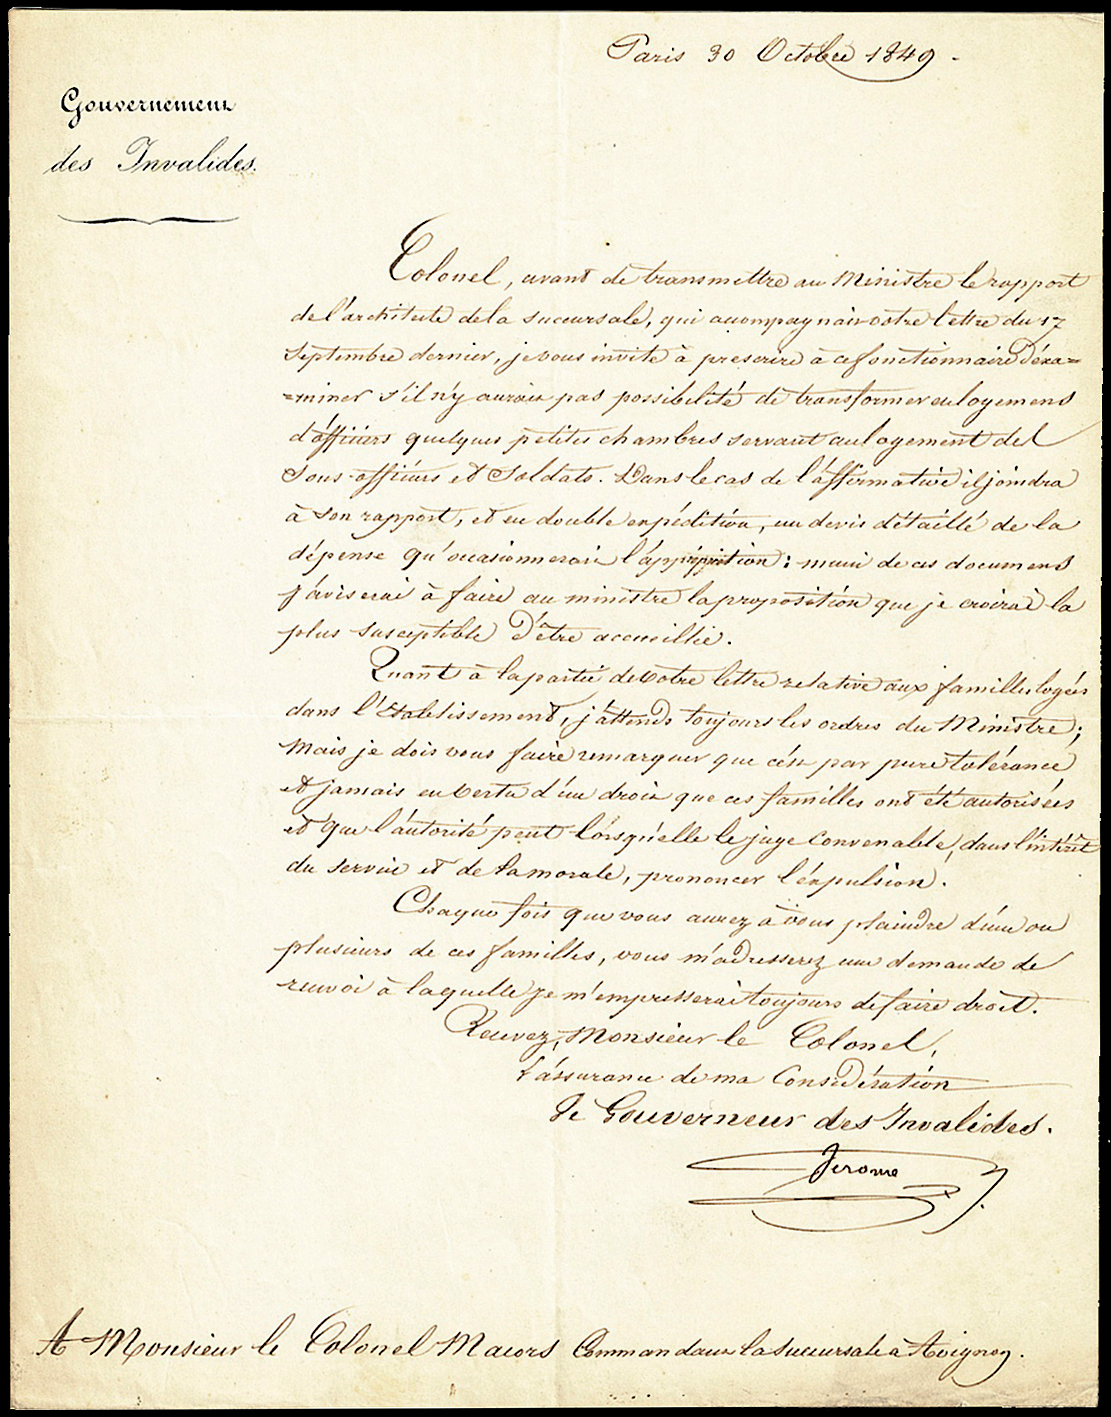 Paris 30 Octobre 1849.
Gouvernement
des Invalides.
Colonel, avant de transmettre au Ministre le rapport
de l'architecte de la succursale, qui accompagnait votre lettre du 17
Septembre dernier, je vous invite à prescrire à ce fonctionnaire d'éxa=
=miner s'il n'y aurait pas possibilité de transformer en logemens
d'officiers quelques petites chambres servant au logement des
Sous-officiers et Soldats. Dans le cas de l'affirmative il joindra
à son rapport, et en double expédition, un devis détaillé de la
dépense qu'occasionnerait l'appropriation : muni de ces documens
j'aviserai à faire au ministre la proposition que je croirai la
plus susceptible d'être accueillie.
Quant à la partie de votre lettre relative aux familles logées
dans l'Etablissement, j'attends toujours les ordres du Ministre ;
Mais je dois vous faire remarquer que c'est par pure tolérance
et jamais en vertu d'un droit que ces familles ont été autorisées
et que l'autorité peut lorsqu'elle le juge convenable, dans l'intérêt
du service et de la morale, prononcer l'éxpulsion.
Chaque fois que vous aurez à vous plaindre d'une ou
plusieurs de ces familles, vous m'adresserez une demande de
renvoi à laquelle je m'empresserai toujours de faire droit.
Recevez, Monsieur le Colonel,
l'assurance de ma Considération
Le Gouverneur des Invalides.
Jerome
A Monsieur le Colonel Maiors Commandant la succursale à Avignon.